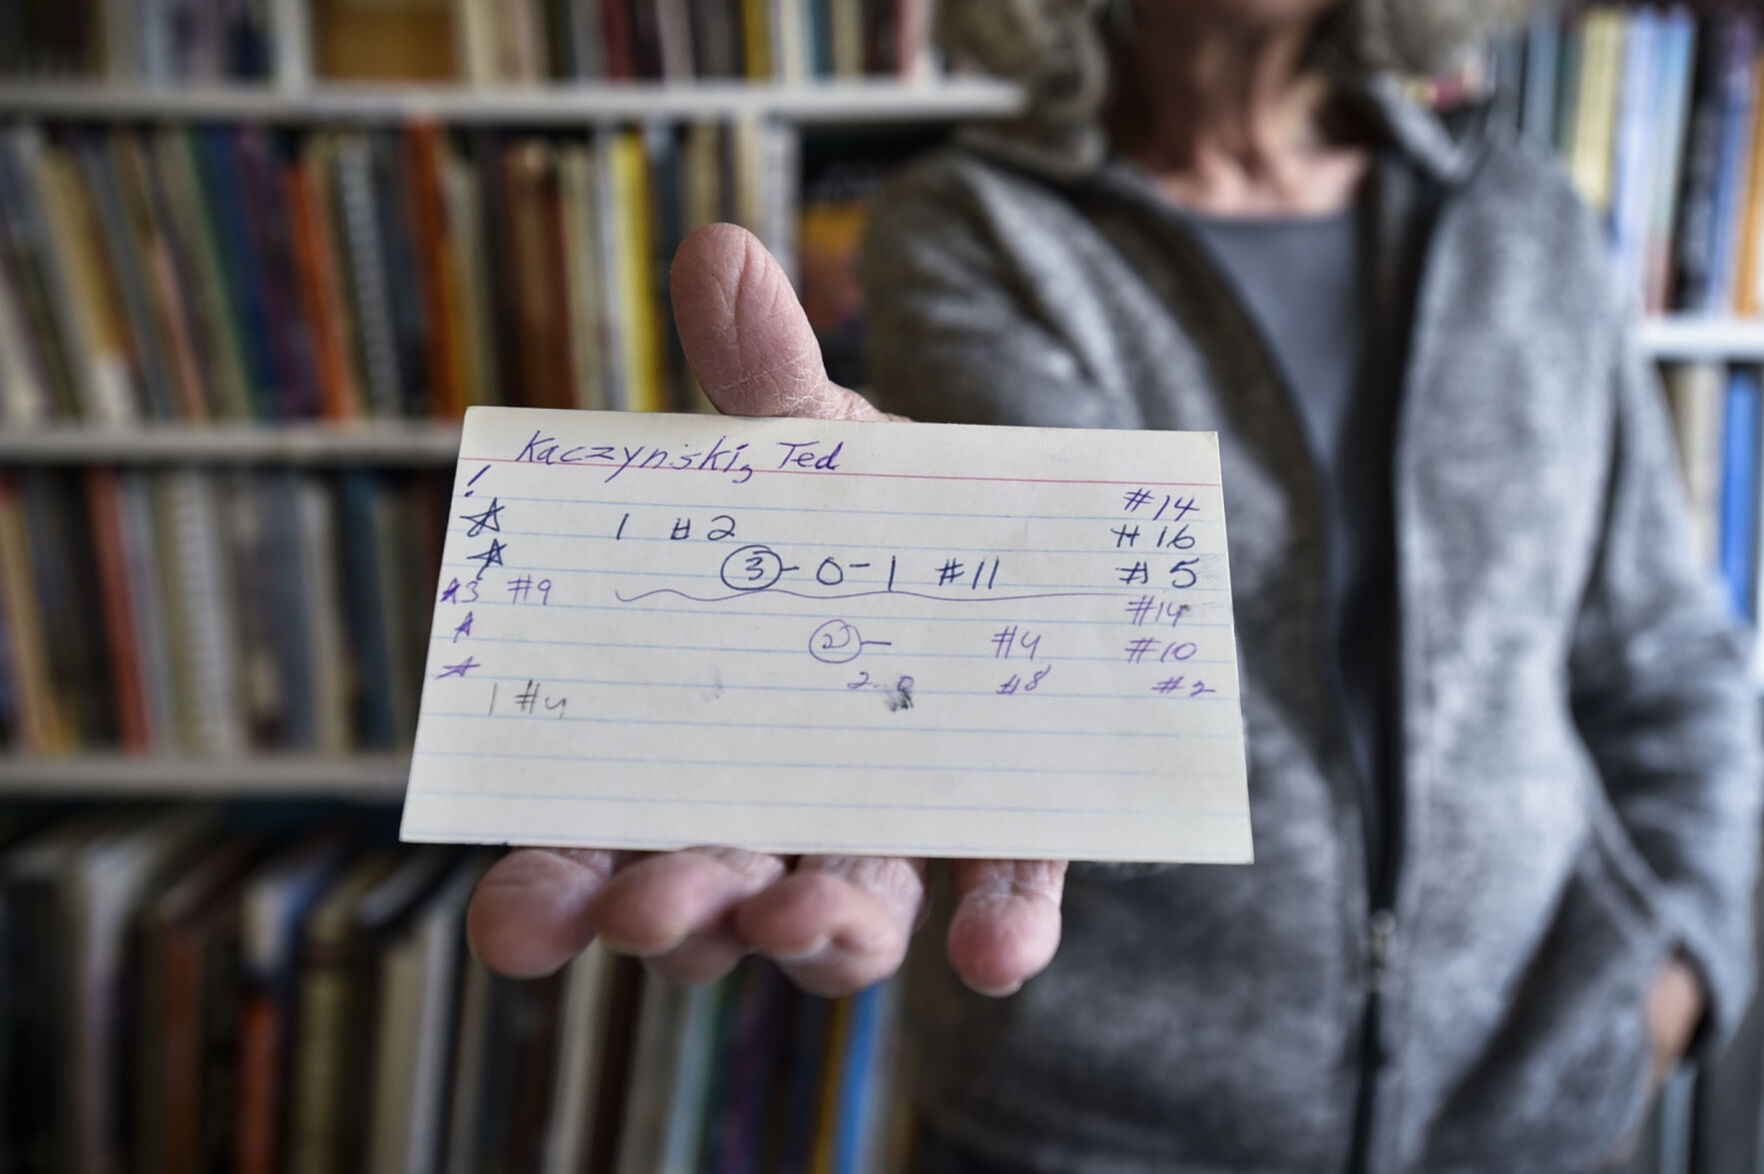 Kaczynski, Ted
! #14
☆ 1 #2 #16
☆ ③-0-1 #11 #5
☆3 #9 #14
☆ ②- #4 #10
☆ 2-0 #8 #2
1 #4